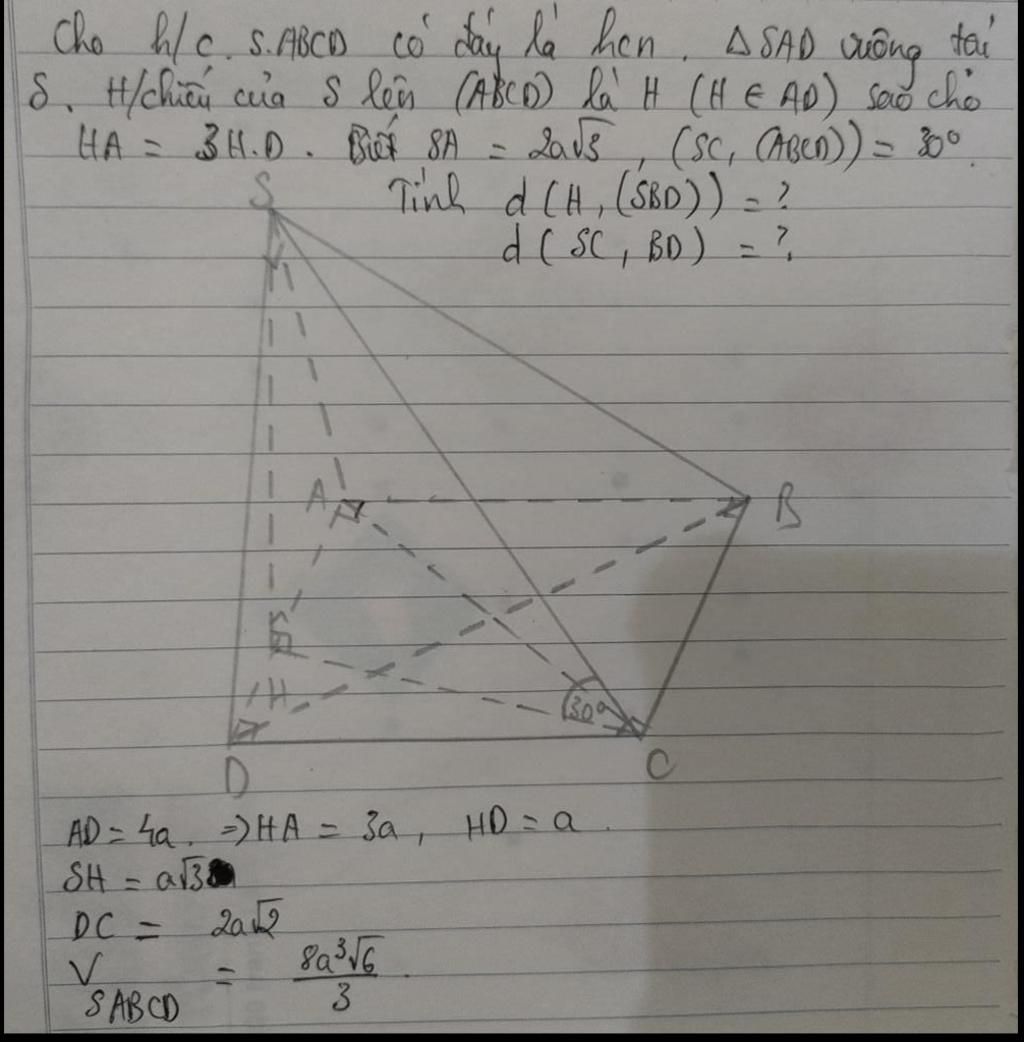 Cho h/c. S.ABCD có đáy là hcn. ΔSAD vuông tại
S. H/chiếu của S lên (ABCD) là H (H ∈ AD) sao cho
HA = 3H.D. Biết SA = 2a√3, (SC, (ABCD)) = 30°.
Tính d(H, (SBD)) = ?
d(SC, BD) = ?
S
A
B
H
30°
D
C
AD = 4a. ⇒ HA = 3a, HD = a.
SH = a√3
DC = 2a√2
V SABCD = 8a³√6 / 3.